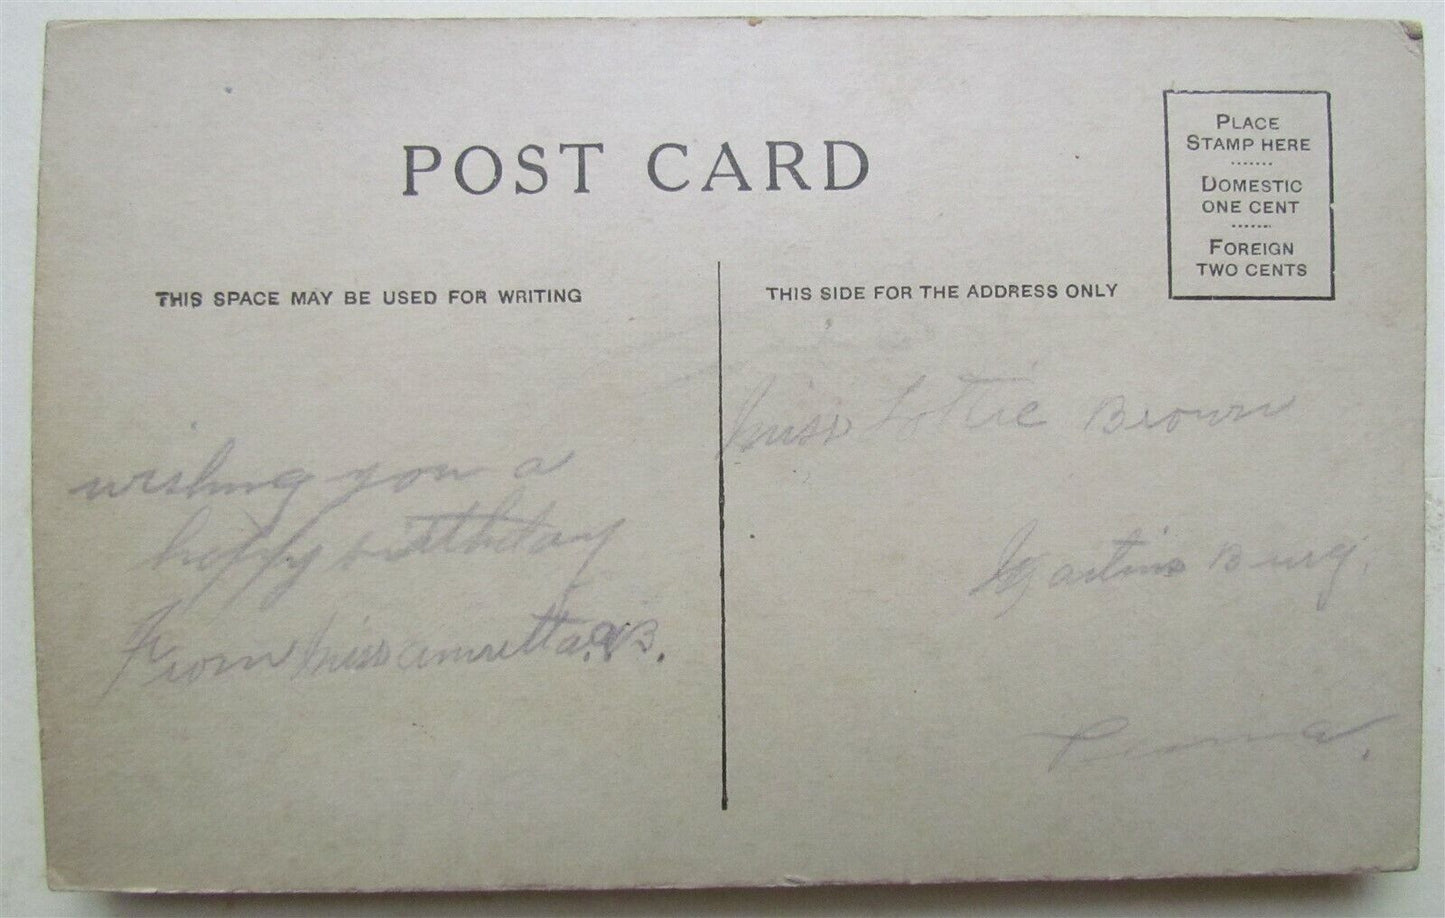 POST CARD
PLACE
STAMP HERE
DOMESTIC
ONE CENT
FOREIGN
TWO CENTS
THIS SPACE MAY BE USED FOR WRITING
THIS SIDE FOR THE ADDRESS ONLY
wishing you a
happy birthday
From Miss B.
Miss Lottie Brown
Martins Burg,
Penna.